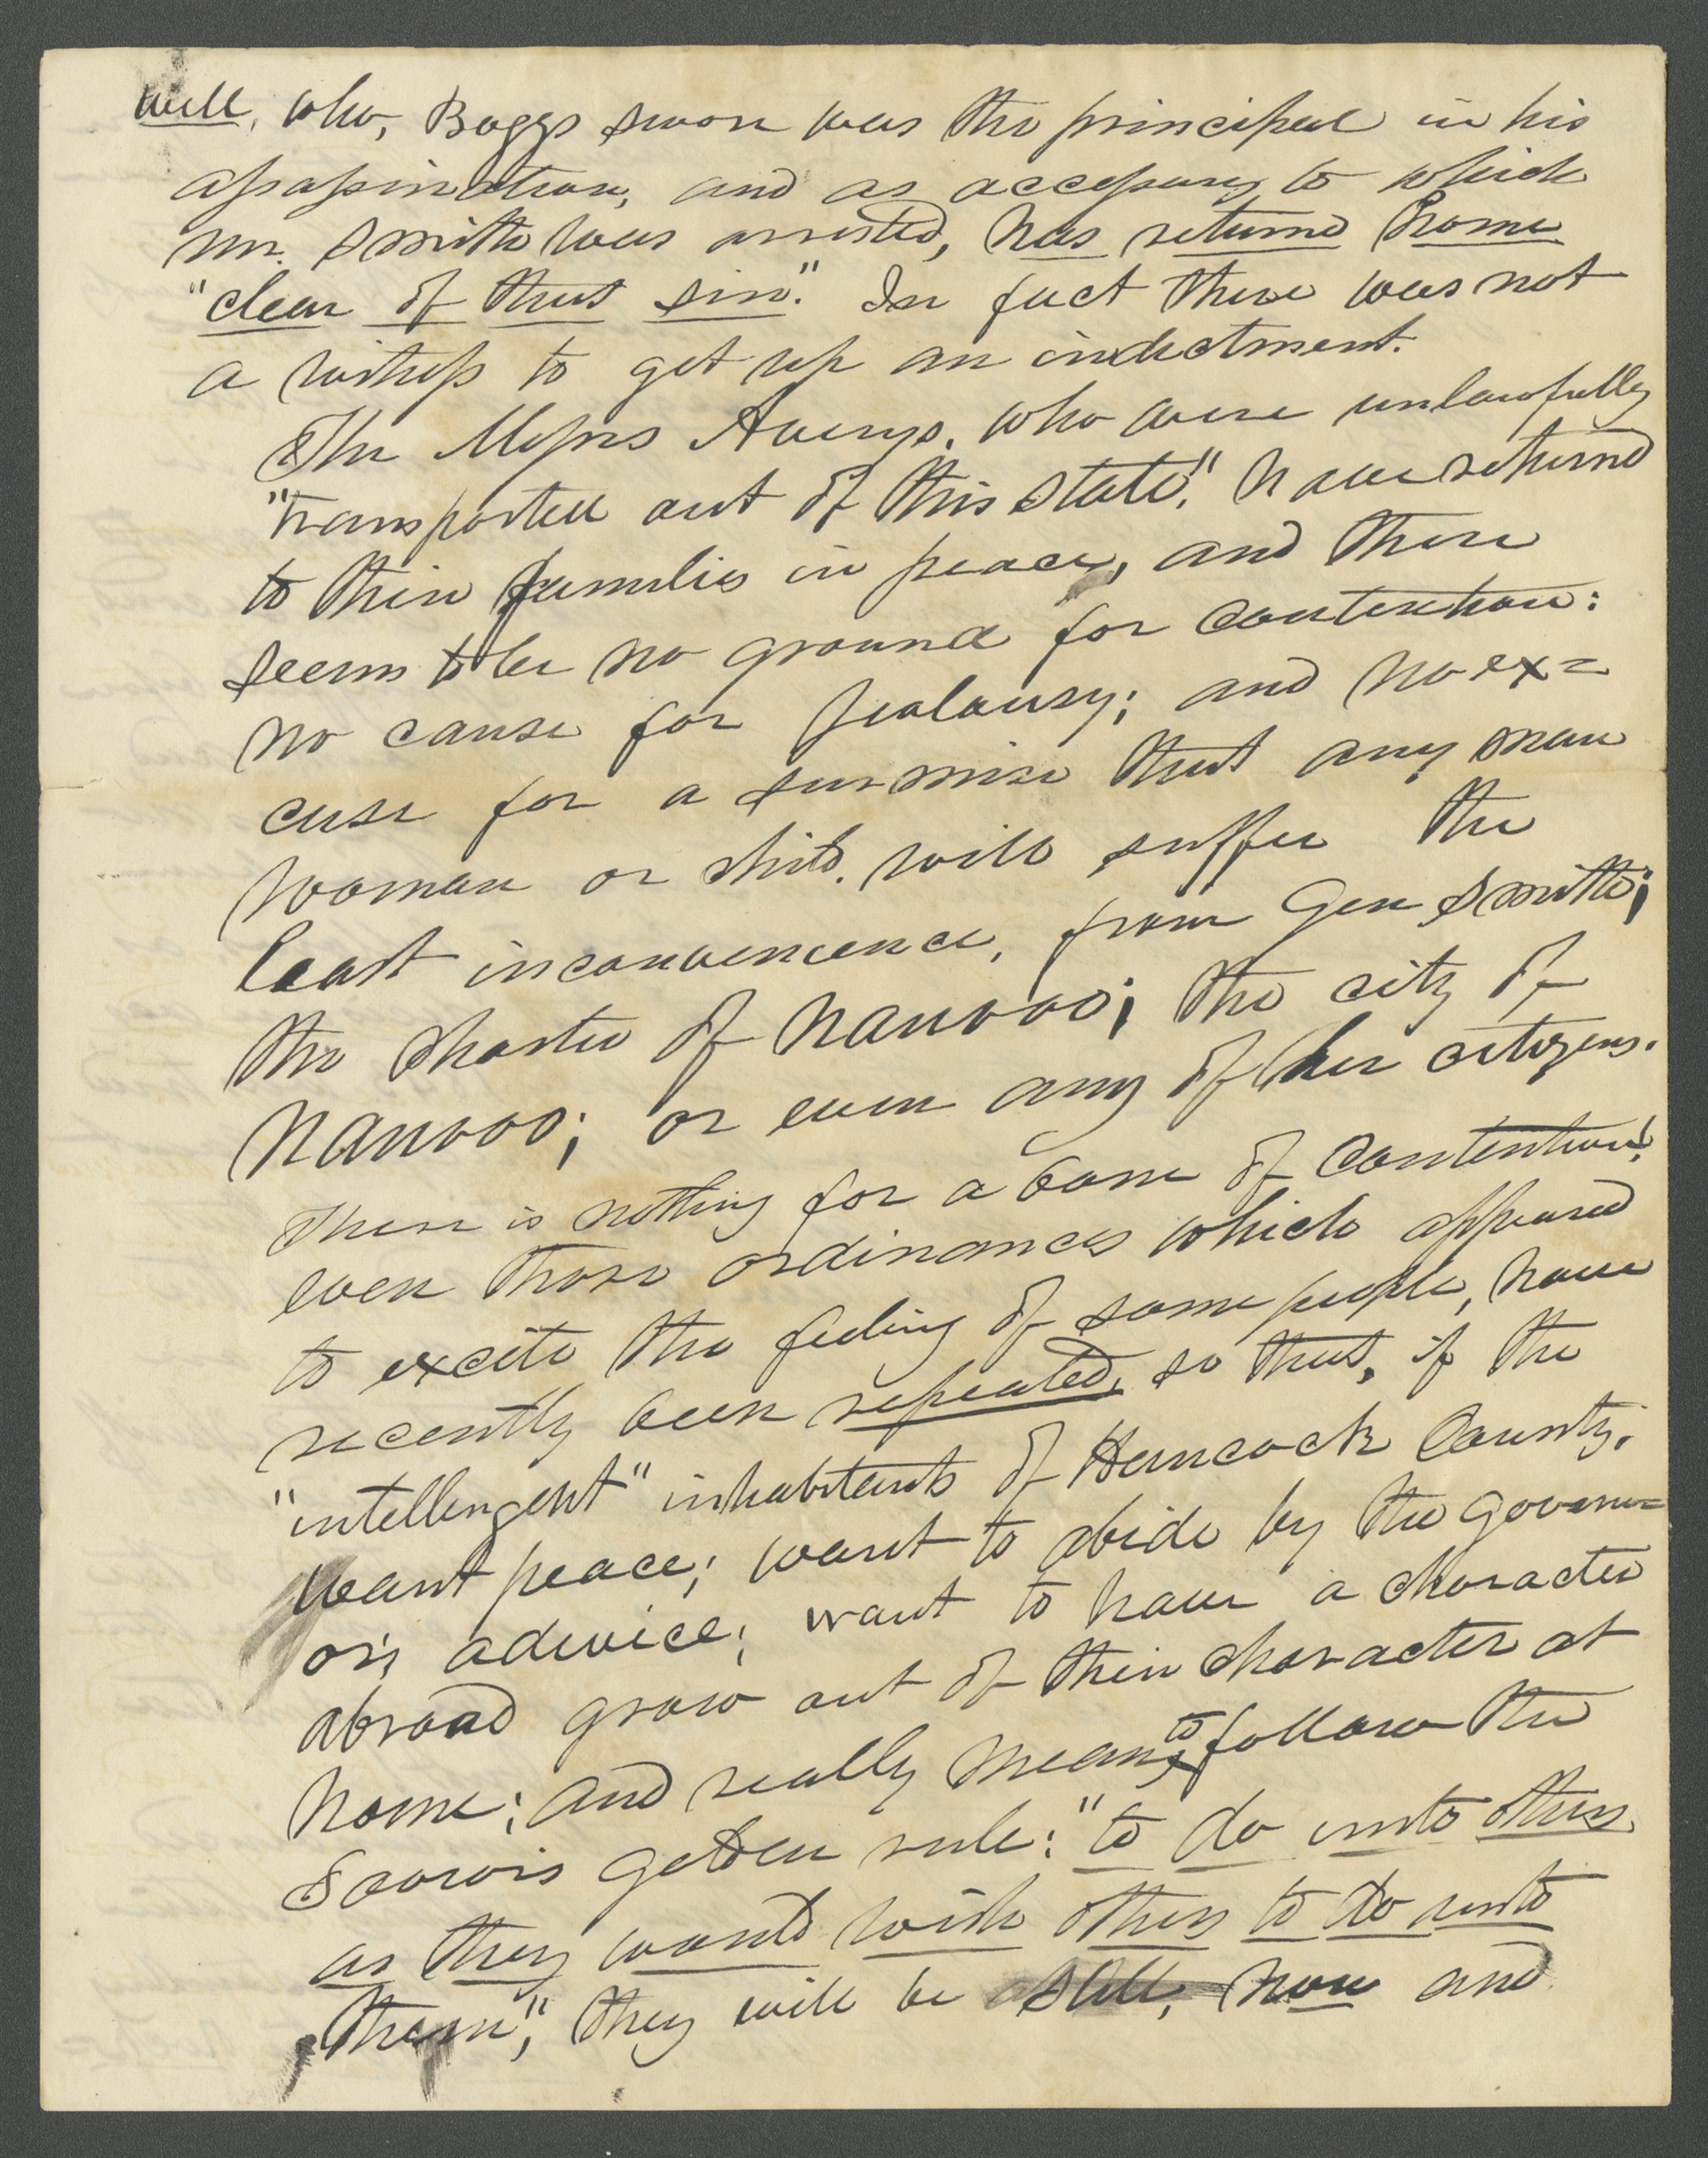 well, who, Boggs swore was the principal in his
assassination, and as accessary to which
Mr. Smith was arrested, has returned home
"clear of that sin." In fact there was not
a witness to get up an indictment.
The Messrs Averys. who were unlawfully
"transported out of this State," have returned
to their families in peace, and there
seems to be no ground for contention:
no cause for jealousy; and no ex=
cuse for a surmise that any man
woman or child. will suffer the
least inconvenience, from Gen Smith;
the charter of Nauvoo; the city of
Nauvoo; or even any of her citizens.
There is nothing for a bone of contention!
even those ordinances which appeared
to excite the feeling of some people, have
recently been repealed, so that, if the
"intellingent" inhabitants of Hancock County.
want peace; want to abide by the govern=
or's advice; want to have a character
abroad grow out of their character at
home; and really mean to follow the
Savior's golden rule: "to do unto others
as they would wish others to do unto
them", they will be still, now and